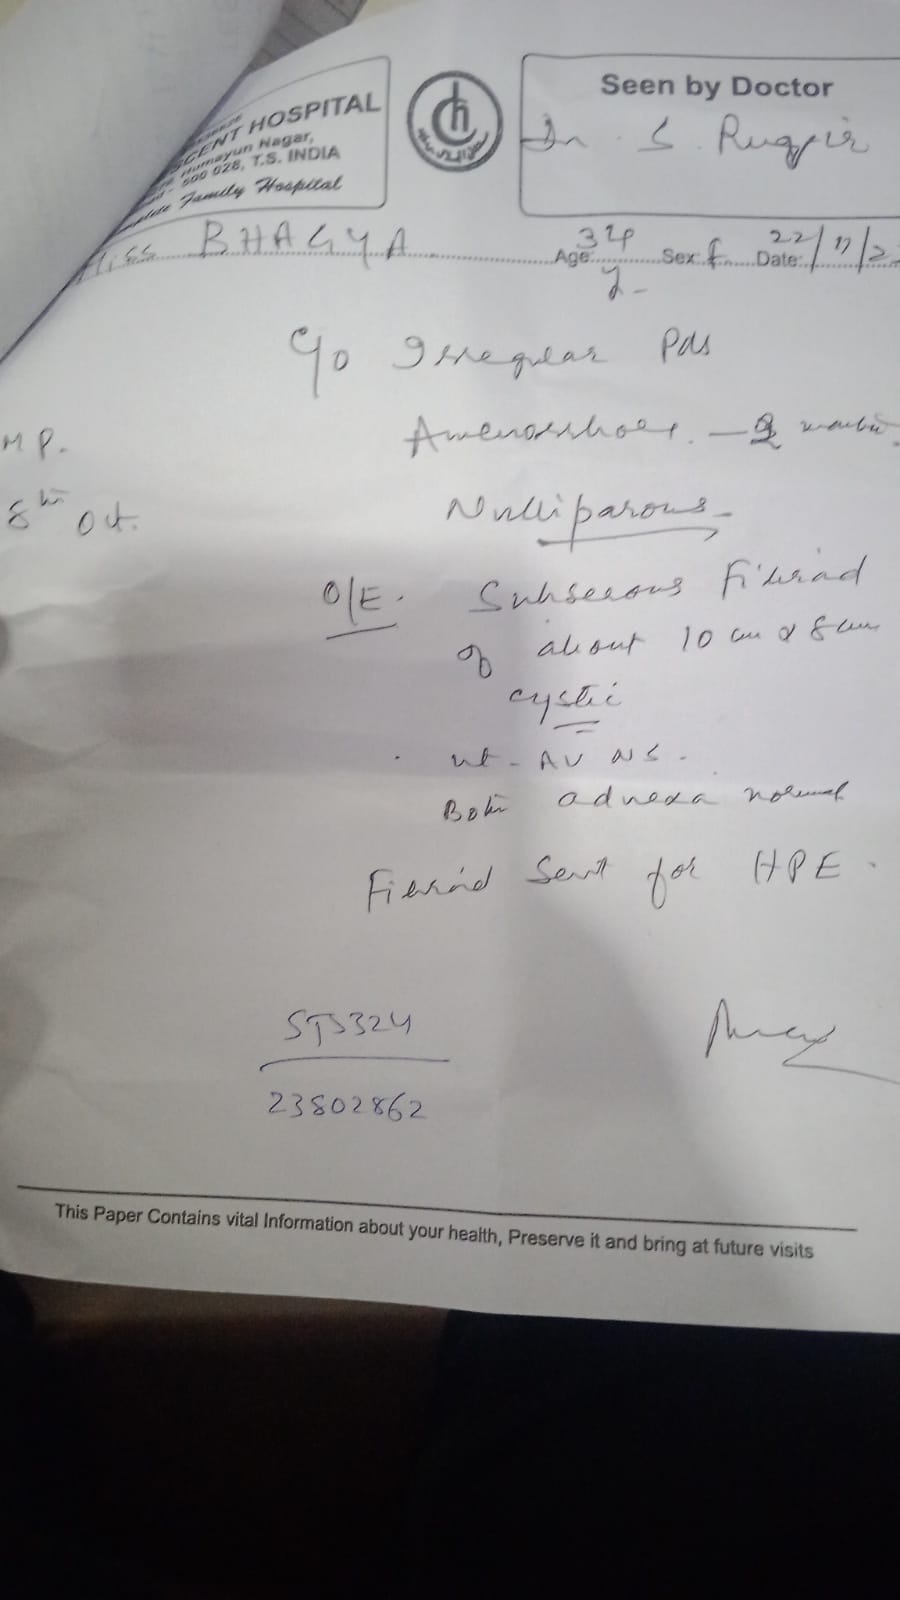 CENT HOSPITAL
Humayun Nagar,
500 028, T.S. INDIA
Family Hospital
Seen by Doctor
Dr. S.
Miss BHAGYA Age: 34 y- Sex: f Date: 22/11/2
C/o Irregular Pds
MP. Amenorrhoea. —
8th Oct. Nulliparous-
O/E. Subserous Fibroid
of about 10 cm x 8 cm
cystic
ut - AV NS.
Both adnexa normal
Fibroid Sent for HPE.
23802862
This Paper Contains vital Information about your health, Preserve it and bring at future visits